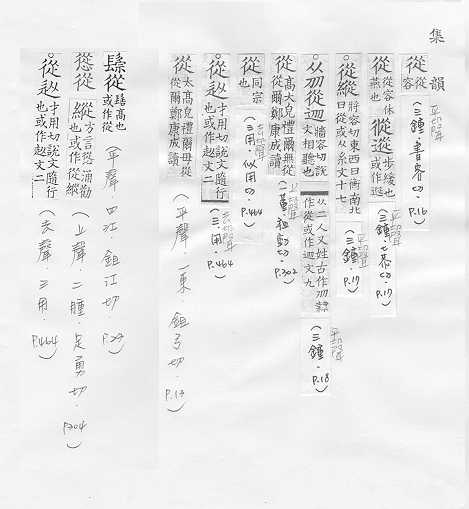 集韻
從從容
(三鍾.書容切.P.16) 平聲
從從容休燕也
從從步緩也或作𨑢 (三鍾.七恭切.P.17) 平聲
從縱將容切東西曰衡南北曰從或从系文十七 (三鍾.P.17) 平聲
從牆容切說文相聽也从二人又姓古作从𠨍隸作從或作𨑢文九 (三鍾.P.18) 平聲
從高大皃禮爾無從從爾鄭康成讀 (二董.祖動切.P.302) 上聲
從同宗也 (三用.似用切.P.464) 去聲
從才用切說文隨行也或作文二 (三.用.P.464) 去聲
從太高皃禮爾毋從從爾鄭康成讀 (平聲.一東.鉏弓切.P.13)
髻高也或作從 (平聲.四江.鉏江切.P.23)
慫從縱方言慫慂勸也或作從縱 (上聲.二腫.足勇切.P.304)
從才用切說文隨行也或作文二 (去聲.三用.P.464)